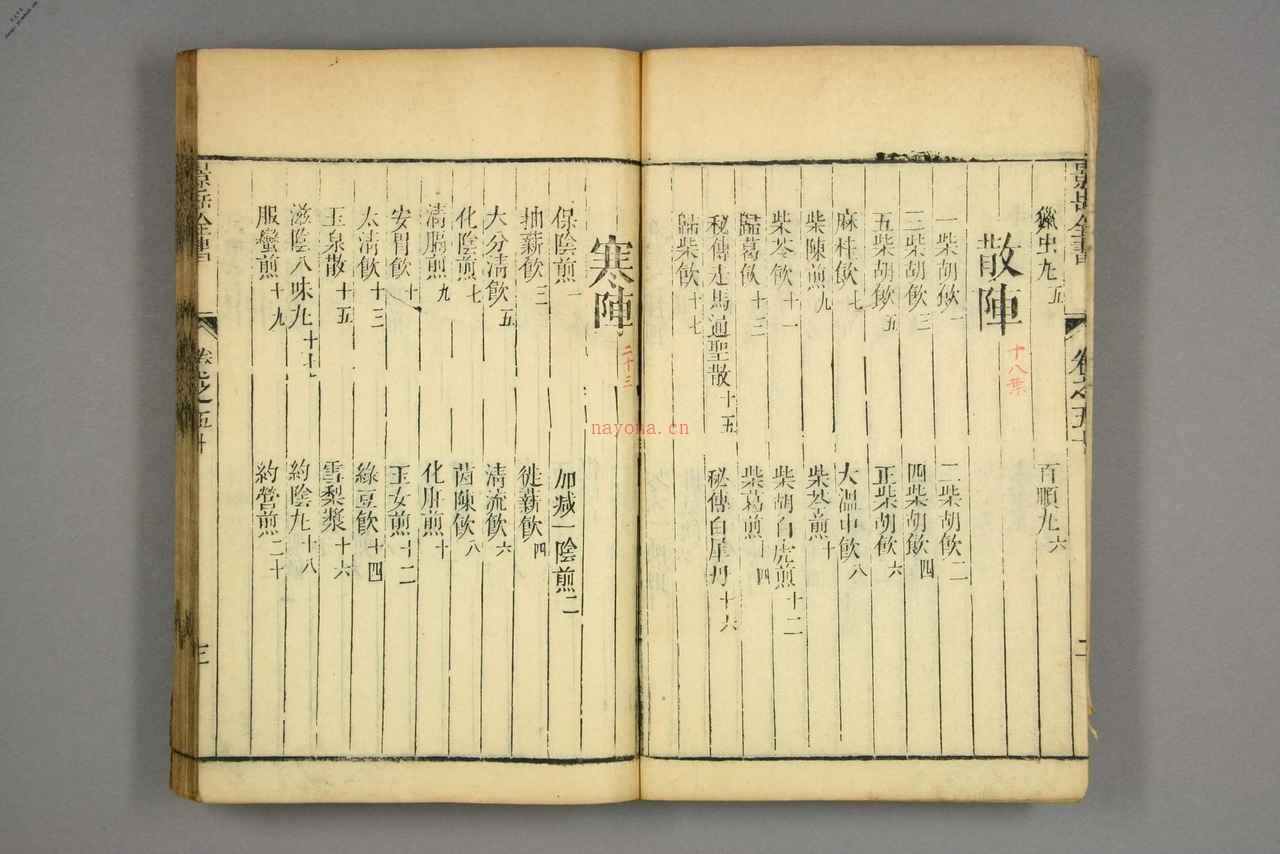 獵虫丸五 百順丸六
散陣
十八葉
一柴胡飲一 二柴胡飲二
三柴胡飲三 四柴胡飲四
五柴胡飲五 正柴胡飲六
麻桂飲七 大溫中飲八
柴陳煎九 柴芩煎十
柴苓飲十一 柴胡白虎煎十二
歸葛飲十三 柴葛煎十四
秘傳走馬通聖散十五 秘傳白犀丹十六
歸柴飲十七
寒陣
二十三
保陰煎一 加減一陰煎二
抽薪飲三 徙薪飲四
大分清飲五 清流飲六
化陰煎七 茵陳飲八
清膈煎九 化肝煎十
安胃飲十一 玉女煎十二
太清飲十三 綠豆飲十四
玉泉散十五 雪梨漿十六
滋陰八味丸十七 約陰丸十八
服蠻煎十九 約營煎二十
景岳全書 卷之五十 二
景岳全書 卷之五十 三
nayona.cn